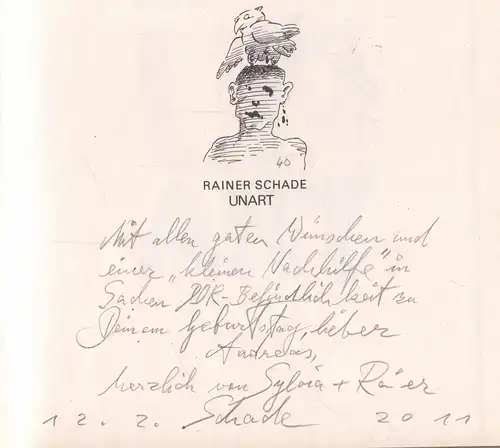 40
RAINER SCHADE
UNART
Mit allen guten Wünschen und
einer „kleinen Nachhilfe" in
Sachen DDR-Befindlichkeit zu
Deinem Geburtstag, lieber
Andreas,
herzlich von Sylvia + Rainer
12. 2. Schade 2011